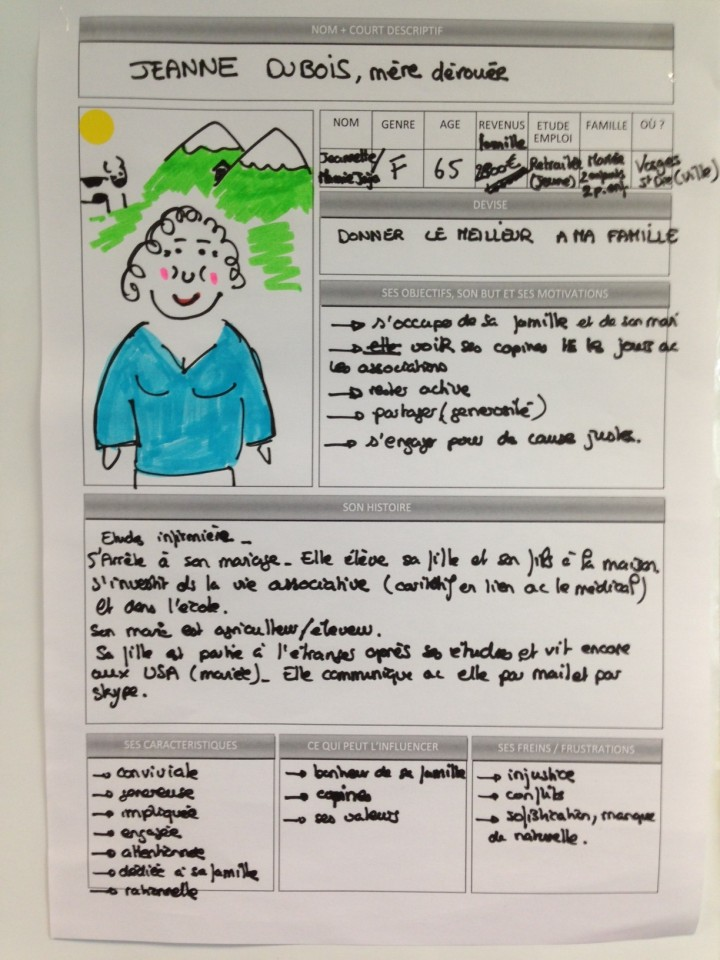 NOM + COURT DESCRIPTIF
JEANNE DUBOIS, mère dévouée
NOM GENRE AGE REVENUS ETUDE EMPLOI FAMILLE OÙ ?
famille
Jeannette/ F 65 2800€ Retraitée Mariée Vosges
(jeune) 2 enfants St Dié (ville)
DEVISE
DONNER LE MEILLEUR A MA FAMILLE
SES OBJECTIFS, SON BUT ET SES MOTIVATIONS
→ s'occupe de sa famille et de son mari
→ voir ses copines ts les jours ac
les associations
→ rester active
→ partager (generosité)
→ s'engager pour de cause justes.
SON HISTOIRE
Etude infirmière -
S'Arrête à son mariage - Elle élève sa fille et son fils à la maison
s'investit ds la vie associative (caritatif en lien ac le médical)
et dans l'école.
Son marie est agriculteur/éleveur.
Sa fille est partie à l'étranger après ses études et vit encore
aux USA (mariée) - Elle communique ac elle par mail et par
skype.
SES CARACTERISTIQUES
→ conviviale
→ genereuse
→ impliquée
→ engagée
→ attentionnée
→ dédiée à sa famille
→ rationnelle
CE QUI PEUT L'INFLUENCER
→ bonheur de sa famille
→ copines
→ ses valeurs
SES FREINS / FRUSTRATIONS
→ injustice
→ conflits
→ sofistication, manque
de naturelle.